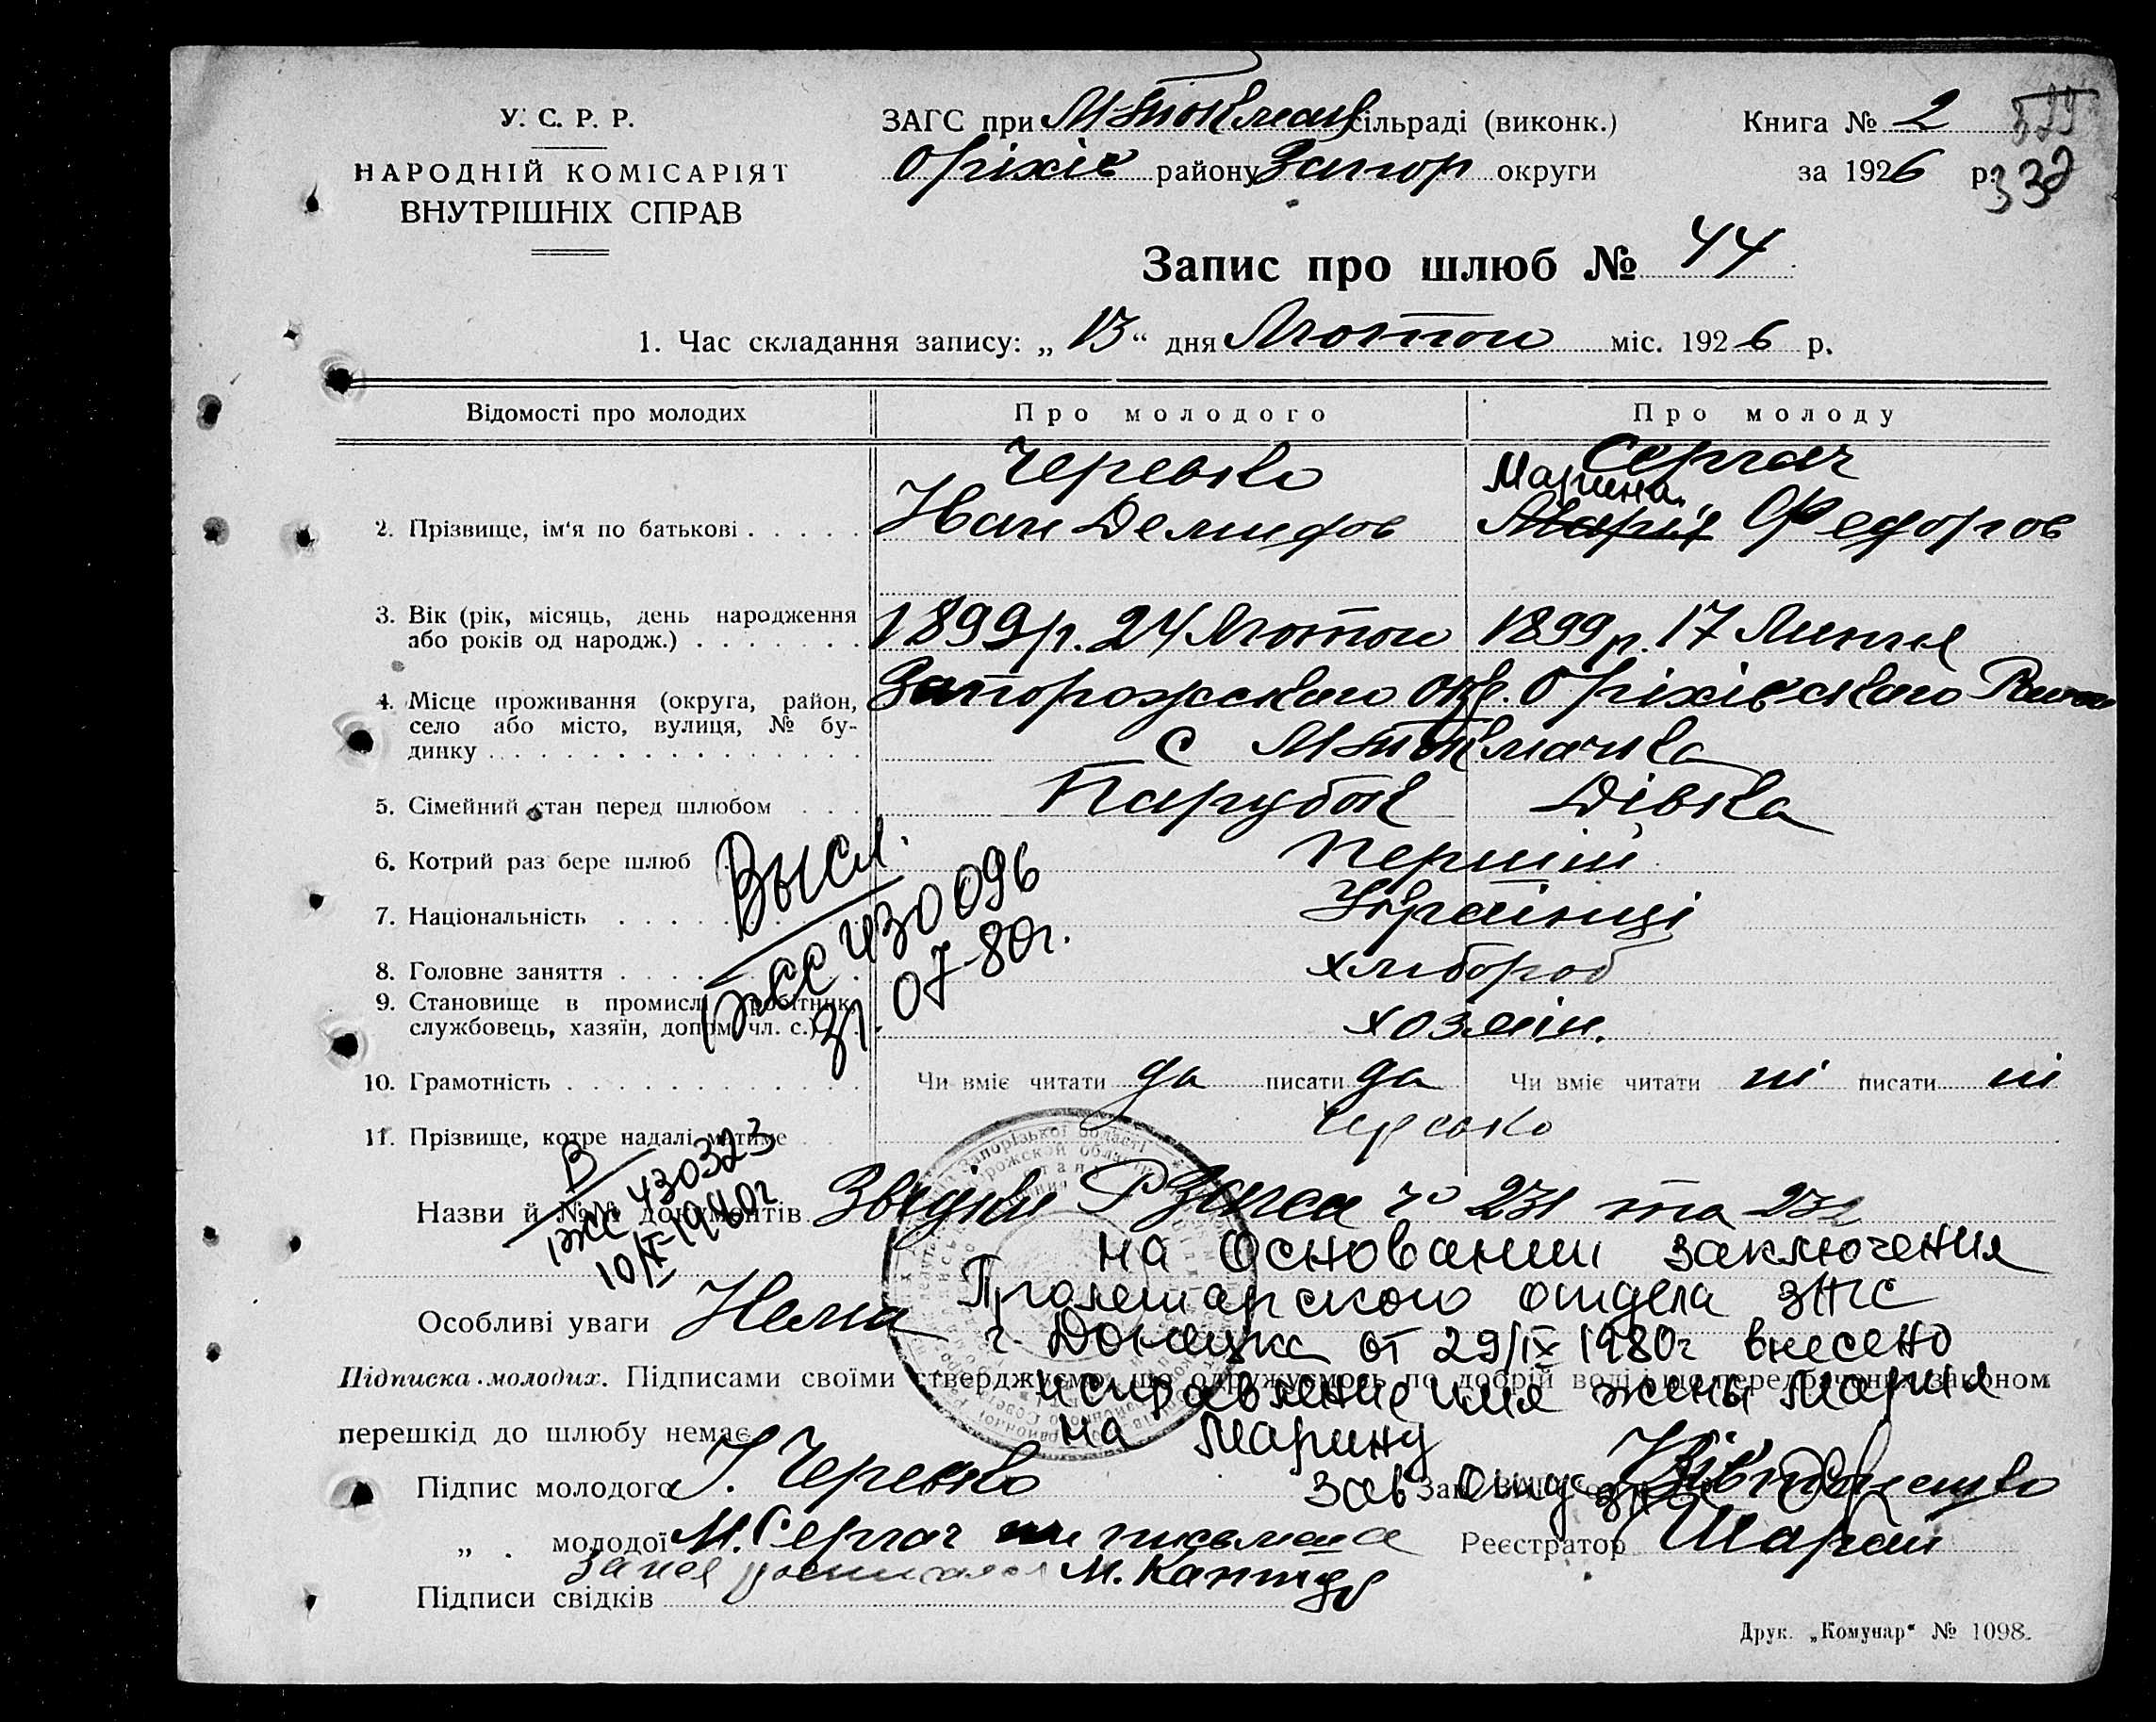 У. С. Р. Р.
НАРОДНІЙ КОМІСАРІЯТ
ВНУТРІШНІХ СПРАВ
ЗАГС при М Токмац сільраді (виконк.)
Оріхів району Запор округи
Книга № 2
за 1926 р.
332
Запис про шлюб № 44
1. Час складання запису: „13“ дня Лютого міс. 1926 р.
Відомості про молодих Про молодого Про молоду
2. Прізвище, ім‘я по батькові
Черевко
Иван Демидов
Сергач
Марина
Марія Федоров
3. Вік (рік, місяць, день народження
або років од народж.)
1899 р. 24 Лютого
1899 р. 17 Липня
4. Місце проживання (округа, район,
село або місто, вулиця, № бу-
динку
Запорожского окр. Оріхівского Район
с М Токмачка
5. Сімейний стан перед шлюбом Парубок Дівка
6. Котрий раз бере шлюб Перший
7. Національність Українці
8. Головне заняття хлибороб
9. Становище в промислі робітник,
службовець, хазяїн, допом. чл. с.)
хозяін.
Высл.
ІЖС 430096
31.07-80г.
10. Грамотність Чи вміє читати да писати да Чи вміє читати ні писати ні
11. Прізвище, котре надалі матиме Черевко
В
ІЖС 430323
10/X-1980г
Назви й №№ документів Звідки Р Загса № 231 та
на основании заключения
Пролетарского отдела ЗАГС
г. Донецка от 29/IX 1980г внесено
исправление имя жены Мария
на Марину
Особливі уваги Нема
Підписка молодих. Підписами своїми стверджуємо, що одружуємось по добрій волі і що передбачених законом
перешкід до шлюбу немає.
Підпис молодого І. Черевко
Зав. Зав отд
„ . молодої М. Сергач не письмена
Реєстратор Шарай
за неї М. Каптур
Підписи свідків
Друк. „Комунар“ № 1098.